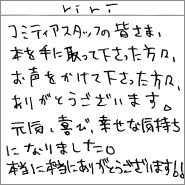 コミティアスタッフの皆さま、
本を手に取って下さった方々、
お声をかけて下さった方々、
ありがとうございます。
元気、喜び、幸せな気持ち
になりました。
本当に本当にありがとうございます!!